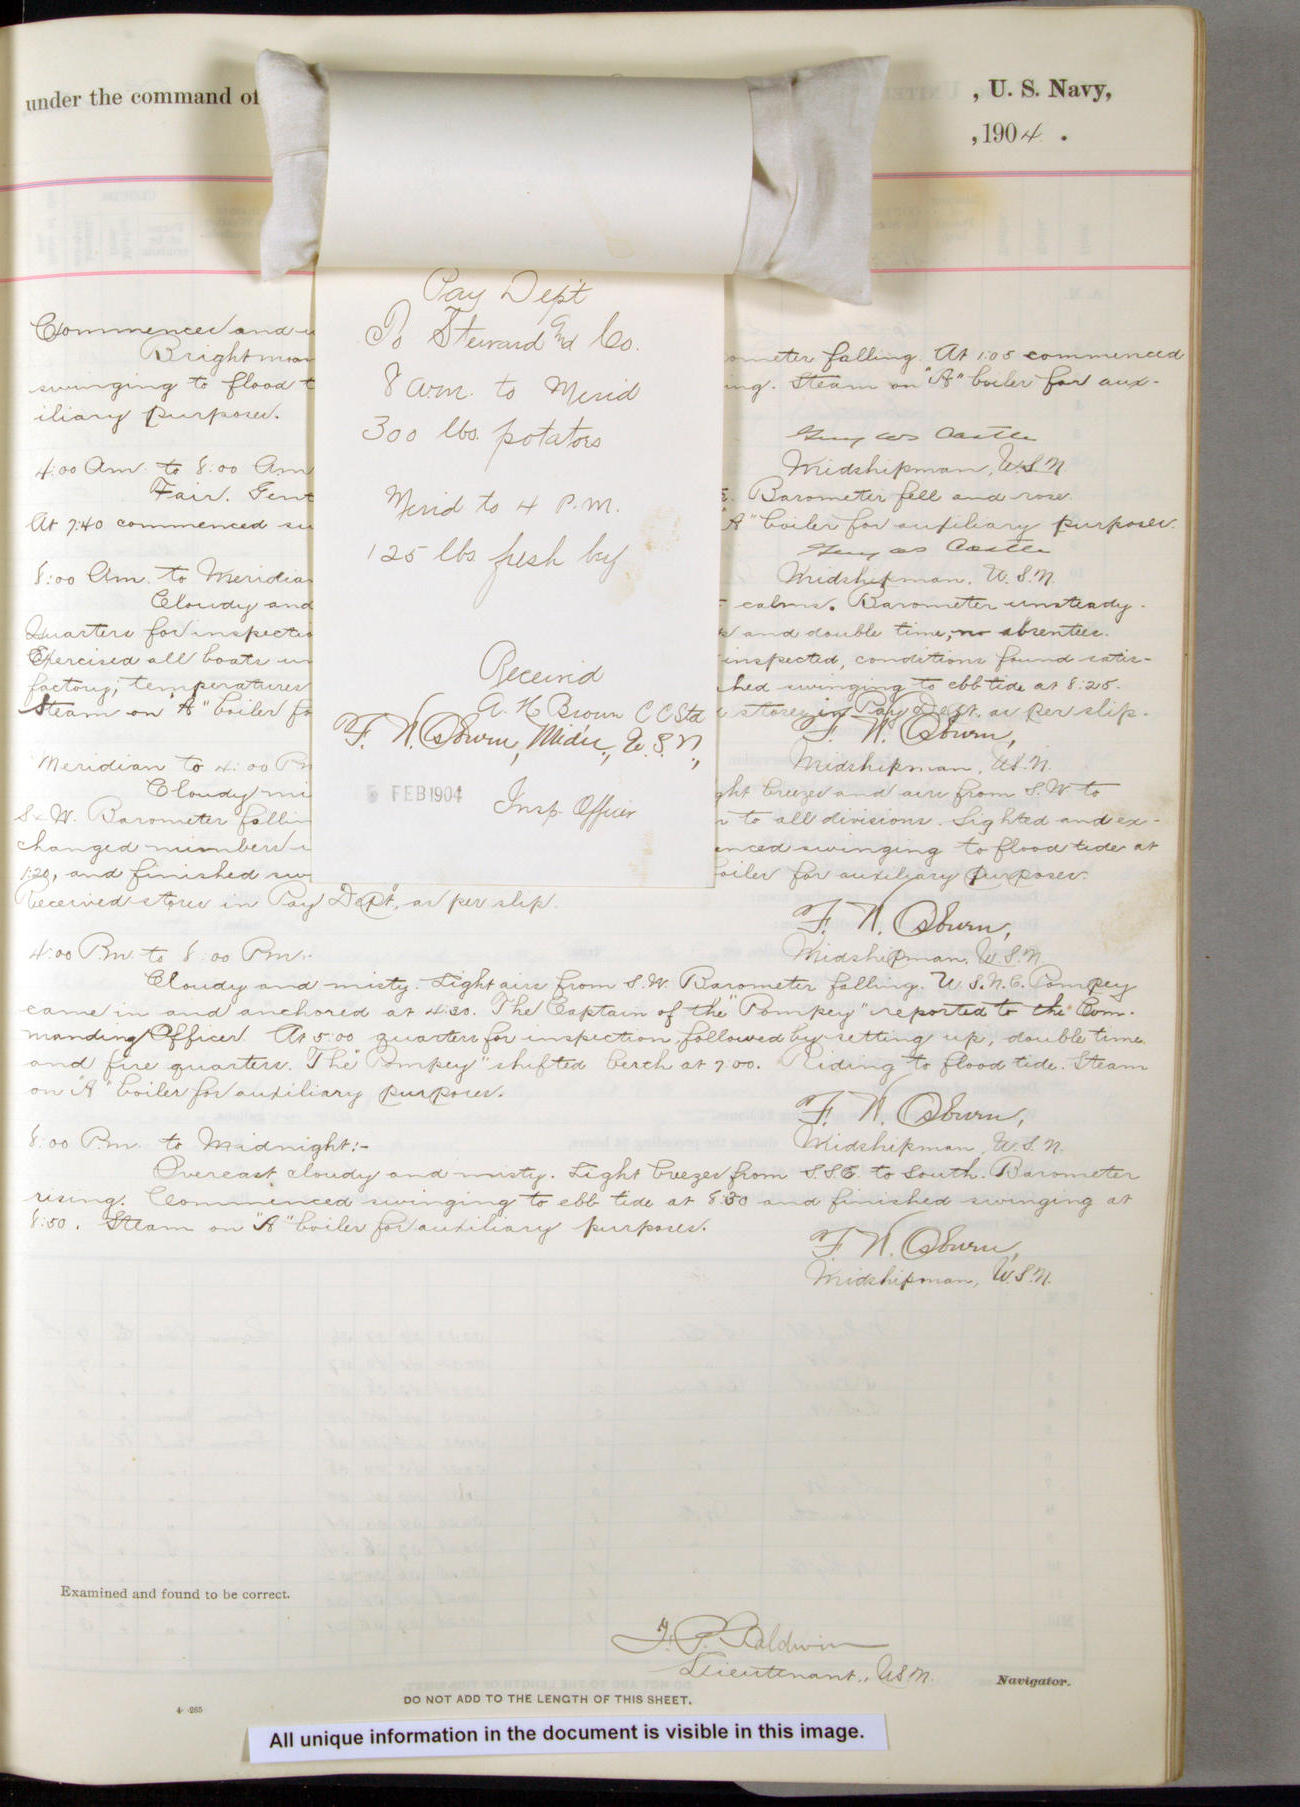 under the command of
, U. S. Navy,
, 1904.
Pay Dept
To Steward Gnd Co.
8 a.m. to Merid
300 lbs. potatoes
Merid to 4 P.M.
125 lbs fresh bef
Received
A. H. Brown C C Std
F. N. Osburn, Midn., U.S.N.,
5 FEB 1904
Insp. Officer
Commences and
Bright moon
ometer falling. At 1:05 commenced
swinging to flood t
ing. Steam on "A" boiler for aux-
iliary purposes.
Guy W S Castle
Midshipman, U.S.N.
4:00 Am. to 8:00 Am
Fair. Gent
Barometer fell and rose.
At 7:40 commenced s
"A" boiler for auxiliary purposes.
Guy W S Castle
Midshipman, U.S.N.
8:00 Am. to Meridia
Cloudy and
calms. Barometer unsteady.
Quarters for inspectio
and double time, no absentees.
Exercised all boats un
inspected, conditions found satis-
factory; temperatures
hed swinging to ebb tide at 8:25.
Steam on "A" boiler fo
stores in Pay Dept. as per slip.
F. N. Osburn,
Midshipman, U.S.N.
Meridian to 4:00 Pm
Cloudy mi
ght breezes and airs from S.W to
SxW. Barometer fallin
to all divisions. Lighted and ex-
changed numbers
enced swinging to flood tide at
1:20, and finished sw
oiler for auxiliary purposes.
Received stores in Pay Dept., as per slip.
F. N. Osburn,
Midshipman, U.S.N.
4:00 Pm. to 8:00 Pm:-
Cloudy and misty. Light airs from S.W. Barometer falling. U.S.N.C. Pompey
came in and anchored at 4:30. The Captain of the "Pompey" reported to the Com-
manding Officer. At 5:00 quarters for inspection, followed by setting up, double time
and fire quarters. The "Pompey" shifted berth at 7:00. Riding to flood tide. Steam
on "A" boiler for auxiliary purposes.
F. N. Osburn,
Midshipman, U.S.N.
8:00 Pm. to Midnight:-
Overcast cloudy and misty. Light breezes from S.S.E. to South. Barometer
rising. Commenced swinging to ebb tide at 8:30 and finished swinging at
8:50. Steam on "A" boiler for auxiliary purposes.
F. N. Osburn,
Midshipman, U.S.N.
Examined and found to be correct.
F. P. Baldwin
Lieutenant, U.S.N.
Navigator.
DO NOT ADD TO THE LENGTH OF THIS SHEET.
4-265
All unique information in the document is visible in this image.